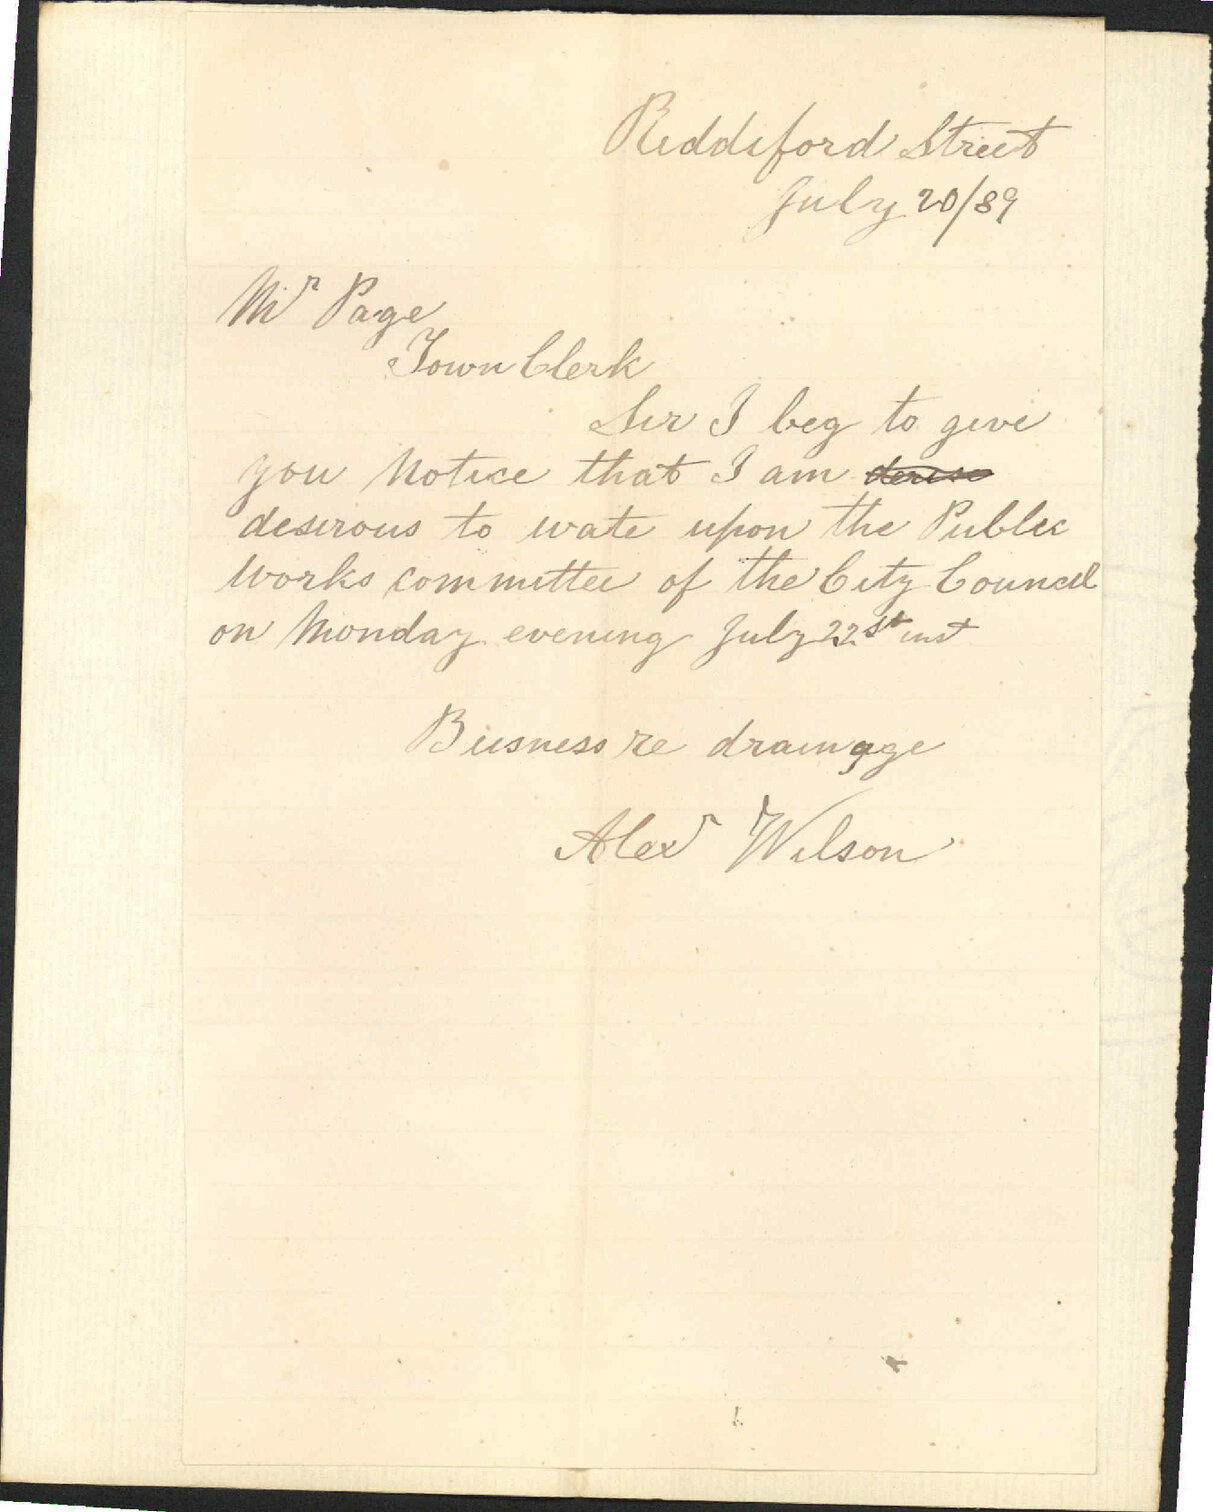 Riddiford Street
July 20/89
Mr Page
Town Clerk
Sir I beg to give
you Notice that I am
desirous to wate upon the Public
Works committee of the City Council
on Monday evening July 22st inst
Busness re drainage
Alexr Wilson